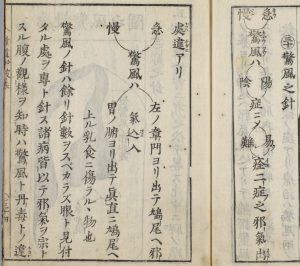 三十 驚風之針
急 陽 易
驚風ハ 症ニメ 痊二症之邪氣門
慢 陰 難
處違アリ
急 左ノ章門ヨリ出テ鳩尾ヘ邪
驚風ハ 氣込入
慢 胃ノ腑ヨリ出テ眞直ニ鳩尾ヘ
上ル乳食ニ傷ラルヽ物也
驚風ノ針ハ餘リ針數ヲスベカラズ眼ト見付
タル處ヲ專ト針ス諸病皆以テ邪氣ヲ宗ト
スル腹ノ觀樣ヲ知時ハ驚風ト丹毒トノ違